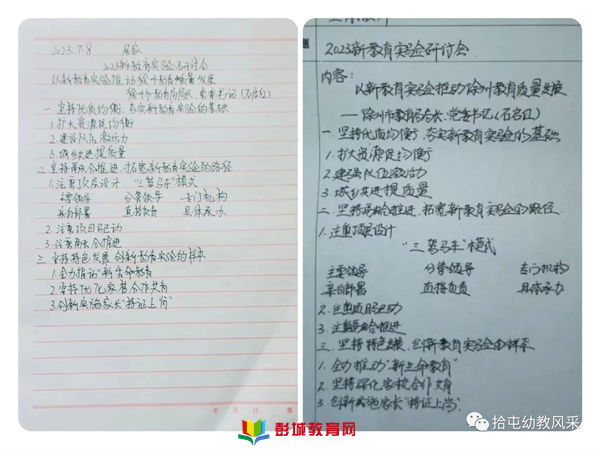 2023.7.8
2023新教育实验研讨会
以新教育实验推动徐州教育质量发展
徐州市教育局局长、党委书记(石启红)
一. 坚持优质均衡, 夯实新教育实验的基础
1. 扩大资源促均衡
2. 建强队伍激活力
3. 城乡共进提质量
二. 坚持融合推进, 拓宽新教育实验的路径
1. 注重顶层设计 "三驾马车"模式
主要领导 分管领导 专门机构
亲自部署 直接负责 具体承办
2. 注重项目驱动
3. 注重融合推进
三. 坚持特色发展, 创新新教育实验的样态
1. 全力推动"新生命教育"
2. 坚持深化家校合作共育
3. 创新实施家长"持证上岗"
年 月 日 第
题
2023新教育实验研讨会
内容:
以新教育实验推动徐州教育质量发展
——徐州市教育局局长、党委书记(石启红)
一. 坚持优质均衡, 夯实新教育实验的基础
1. 扩大资源促均衡
2. 建强队伍激活力
3. 城乡共进提质量
二. 坚持融合推进, 拓宽新教育实验的路径
1. 注重顶层设计
"三驾马车"模式
主要领导 分管领导 专门机构
亲自部署 直接负责 具体承办
2. 注重项目驱动
3. 注重融合推进
三. 坚持特色发展, 创新新教育实验的样态
1. 全力推动"新生命教育"
2. 坚持深化家校合作共育
3. 创新实施家长"持证上岗"
彭城教育网
拾屯幼教风采